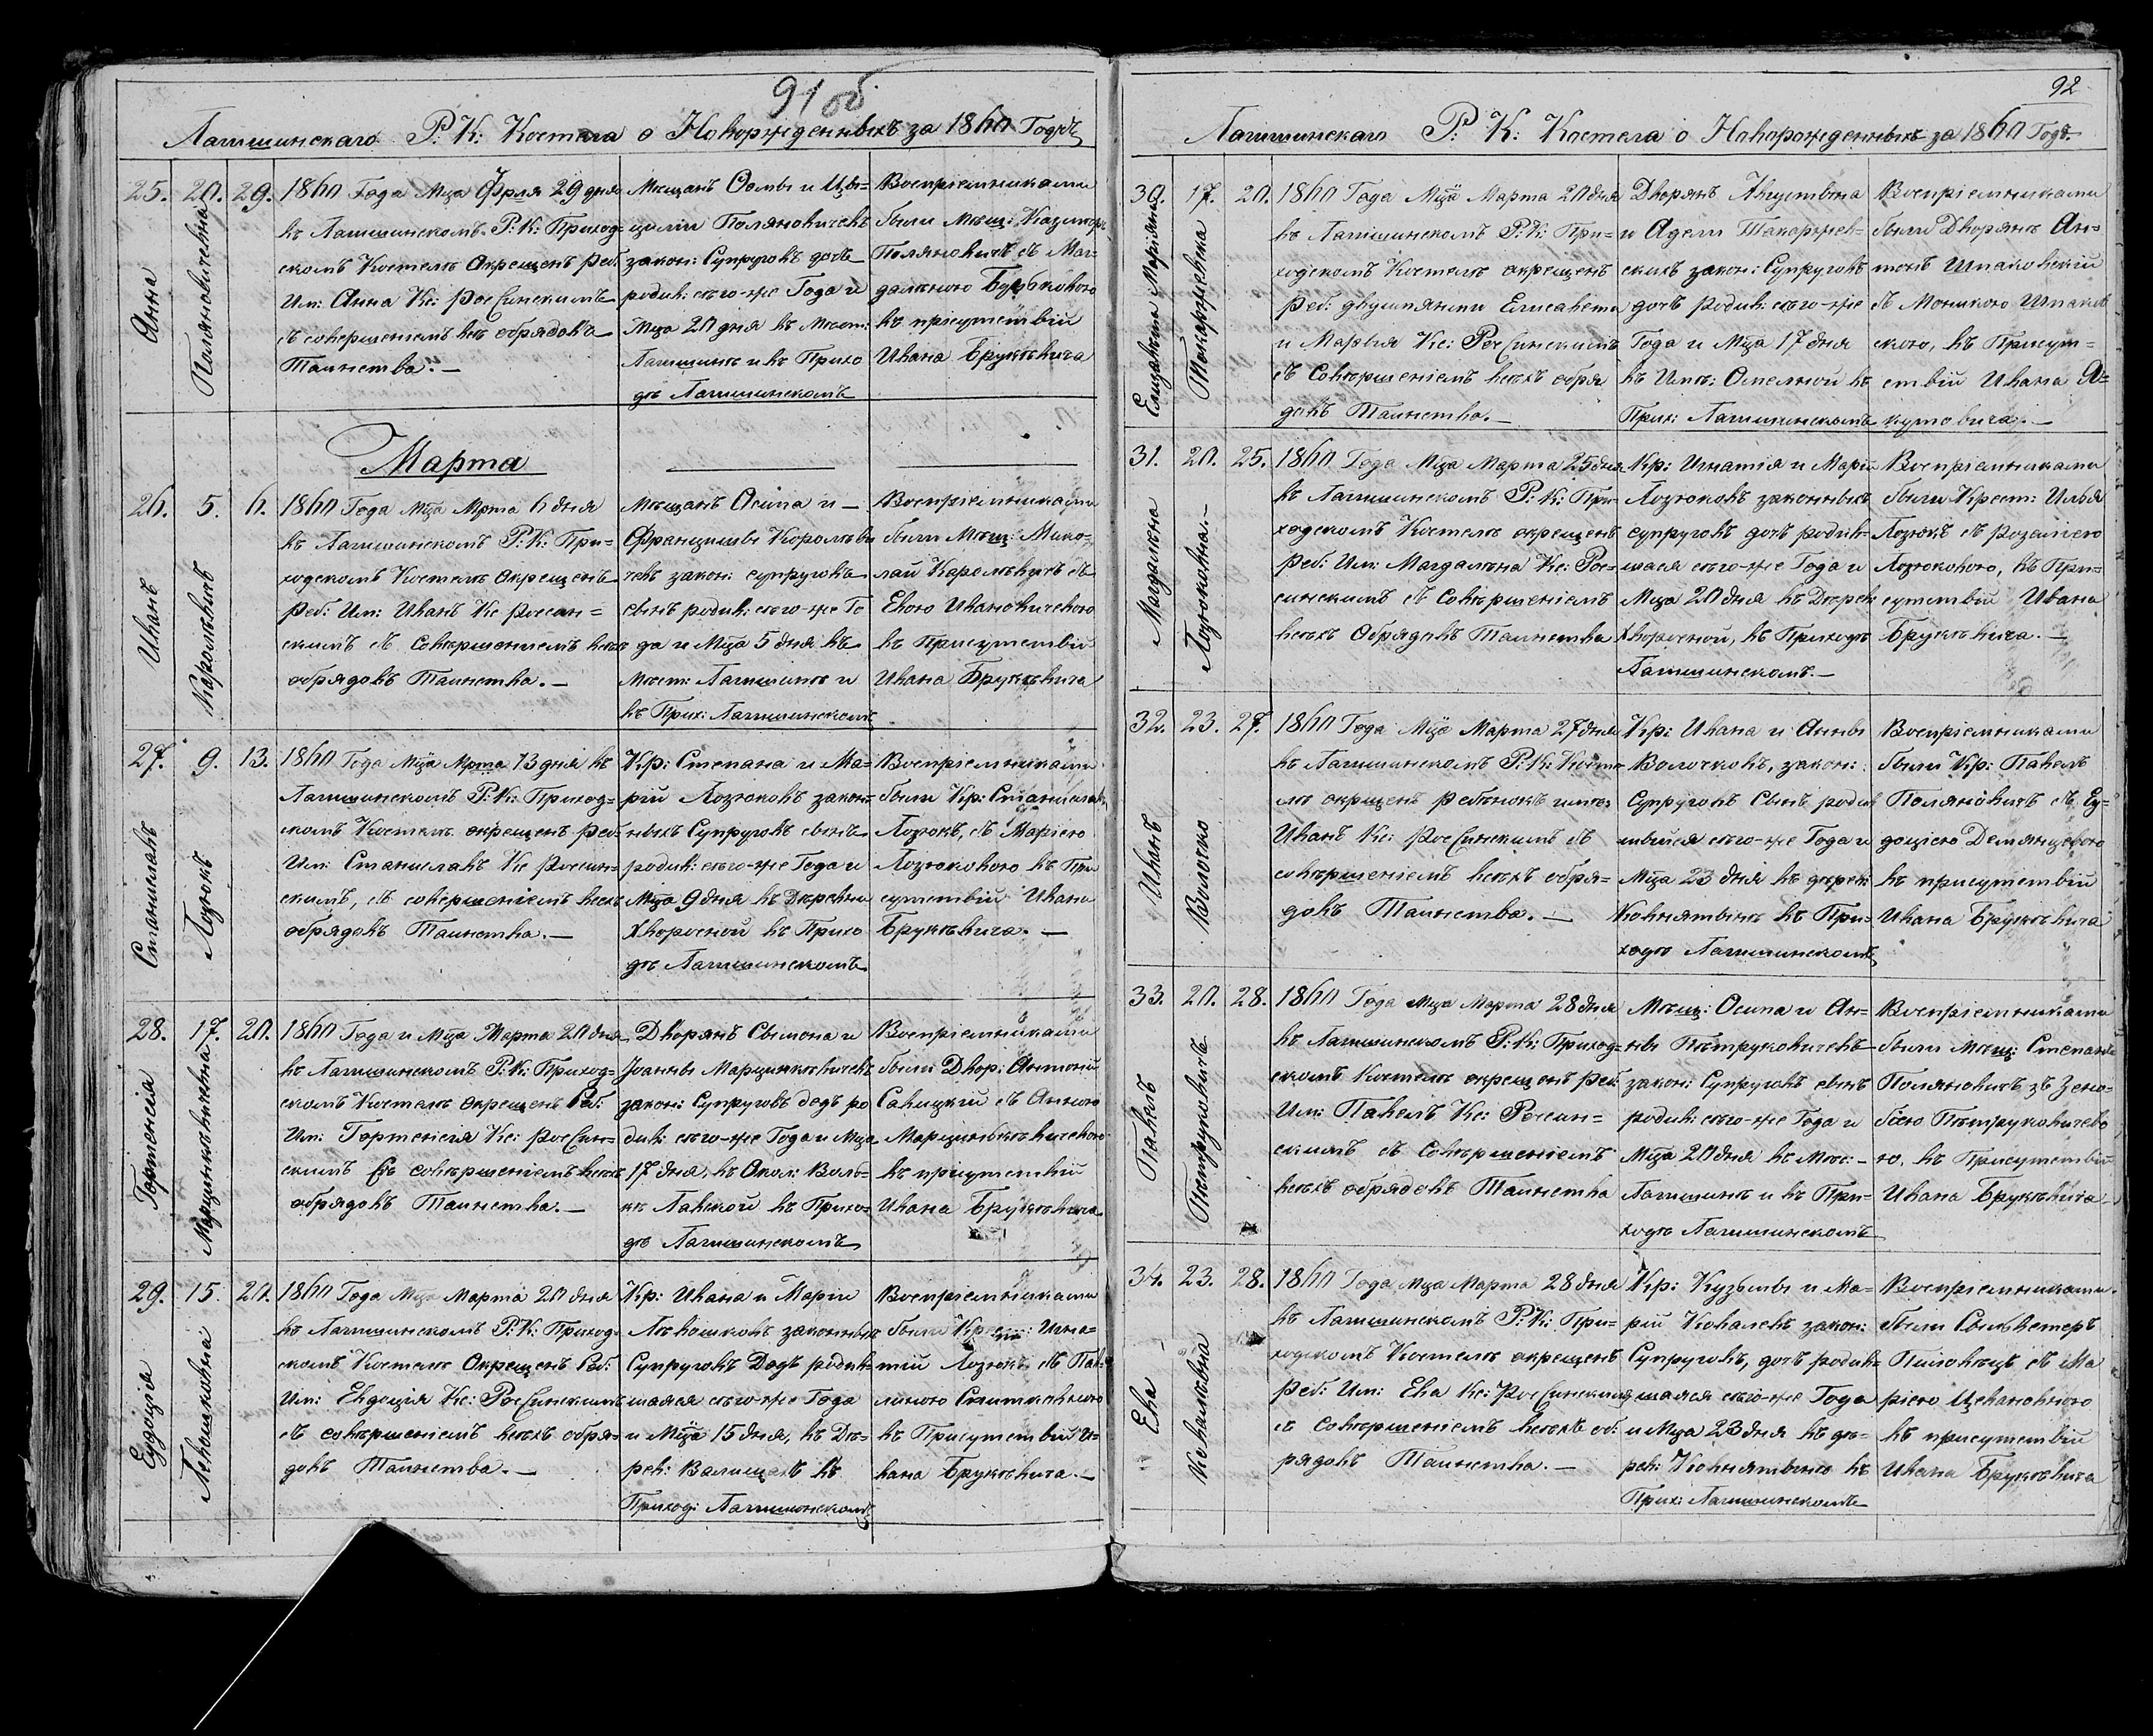 91 об
Логишинскаго Р: К: Костела о Новорожденныхъ за 1860 Годъ
25. 20. 29.
Анна
Поляновичевна
1860 Года Мца Фрля 29 дня
въ Логишинскомъ Р: К: Приход=
скомъ Костелѣ Окрещенъ Реб:
Им: Анна Кс: Россинскимъ
съ совершеніемъ всѣ обрядовъ
Таинства. —
Мѣщанъ Фомы и Це=
циліи Поляновичевъ
закон: Супруговъ дочь
родив: сего-же Года и
Мца 20 дня въ Мѣст:
Логишинѣ и въ Прихо
дѣ Логишинскомъ
Воспріемниками
были Мѣщ: Казимеръ
Поляновичъ съ Маг=
даленою
въ присутствіи
Ивана Брукѣвича
Марта
26. 5. 6.
Иванъ
Каролѣвичъ
1860 Года Мца Мрта 6 дня
въ Логишинскомъ Р: К: При=
ходскомъ Костелѣ Окрещенъ
Реб: Им: Иванъ Кс Россин=
скимъ съ Совершеніемъ всѣхъ
обрядовъ Таинства. —
Мѣщанъ Осипа и —
Францишки Королѣви
чевъ закон: супруговъ
сынъ родив: сего-же Го
да и Мца 5 дня въ
Мѣст: Логишинѣ и
въ Прих: Логишинскомъ
Воспріемниками
были Мѣщ: Мико=
лай Каролѣвичъ съ
Евою Ивановичевою
въ Присутствіи
Ивана Брукѣвича
27. 9. 13.
Станиславъ
Лозюкъ
1860 Года Мца Мрта 13 дня въ
Логишинскомъ Р: К: Приход=
скомъ Костелѣ окрещенъ реб:
Им: Станиславъ Кс Россин=
скимъ, съ совершеніемъ всѣхъ
обрядовъ Таинства. —
Кр: Степана и Ма=
ріи Лозюковъ закон=
ныхъ Супруговъ сынъ
родив: сего-же Года и
Мца 9 дня въ Деревни
Хворосной въ Прихо
дѣ Логишинскомъ
Воспріемниками
были Кр: Станиславъ
Лозюкъ, съ Маріею
Лозюковою въ При
сутствіи Ивана
Брукѣвича. —
28. 17. 20.
Гортенсія
Марцинкѣвичевна
1860 Года и Мца Марта 20 дня
въ Логишинскомъ Р: К: Приход=
скомъ Костелѣ Окрещенъ Реб:
Им: Гортенсія Кс: Россин=
скимъ Съ совѣршеніемъ всѣхъ
обрядовъ Таинства. —
Дворянъ Сымона и
Іоанны Марцинкѣвичевъ
закон: Супруговъ дочь ро
див: сего-же Года и Мца
17 дня, въ Окол: Воль=
кѣ Лавской въ Прихо=
дѣ Логишинскомъ
Воспріемниками
были Двор: Антоній
Савицкій съ Анною
Марцинкѣвичевою
въ присутствіи
Ивана Брукѣвича.
29. 15. 20.
Еудоція
Левошковна
1860 Года Мца Марта 20 дня
въ Логишинскомъ Р: К: Приход=
скомъ Костелѣ Окрещенъ Реб:
Им: Евдоція Кс: Россинскимъ
съ совѣршеніемъ всѣхъ обря=
довъ Таинства. —
Кр: Ивана и Маріи
Лѣвошковъ законныхъ
Супруговъ Дочь родив=
шаяся сего-же Года
и Мца 15 дня, въ Де=
рев: Валищахъ въ
Приход: Логишинскомъ
Воспріемниками
были Крест: Игна=
тій Лозюкъ съ Пав=
линою
въ Присутствіи И=
вана Брукѣвича. —
92
Логишинскаго Р: К: Костела о Новорожденныхъ за 1860 Годъ.
30. 17. 20.
Елизавета Маріянна
Токаржевска
1860 Года Мца Марта 20 дня
въ Логишинскомъ Р: К: При=
ходскомъ Костелѣ окрещенъ
Реб: двуимянами Елисавета
и Марыя Кс: Россинскимъ
съ Совѣршеніемъ всѣхъ обря
довъ Таинства. —
Дворянъ Августына
и Адели Токаржев=
скихъ закон: Супруговъ
дочь родив: сего-же
Года и Мца 17 дня
въ Имѣ: Омельной въ
Прих: Логишинскомъ
Воспріемниками
были Дворянѣ Ан=
тонъ Шпаковскій
съ Моникою Шпаков
скою, въ Присут=
ствіи Ивана Я=
кутовича. —
31. 20. 25.
Магдалѣна
Лозюковна. —
1860 Года Мца Марта 25 дня
въ Логишинскомъ Р: К: При=
ходскомъ Костелѣ окрещенъ
Реб: Им: Магдалѣна Кс: Рос=
синскимъ съ Совѣршеніемъ
всѣхъ Обрядовъ Таинства
Кр: Игнатія и Маріи
Лозюковъ законныхъ
супруговъ дочь родив=
шаяся сего-же Года и
Мца 20 дня въ Дерев:
Хворосной, въ Приходѣ
Логишинскомъ. —
Воспріемниками
были Крест: Илья
Лозюкъ съ Розаліею
Лозюковою, въ При=
сутствіи Ивана
Брукѣвича. —
32. 23. 27.
Иванъ
Волочко
1860 Года Мца Марта 27 дня
въ Логишинскомъ Р: К: Косте=
лѣ окрещенъ ребѣнокъ имѣ:
Иванъ Кс: Россинскимъ съ
совѣршеніемъ всѣхъ обря=
довъ Таинства. —
Кр: Ивана и Анны
Волочковъ, закон:
Супруговъ Сынъ родив
шыйся сего-же Года и
Мца 23 дня въ дерев:
Ковнятынѣ въ При=
ходѣ Логишинскомъ
Воспріемниками
были Кр: Павелъ
Поляновичъ съ Еу=
доціею Демянцовою
въ присутствіи
Ивана Брукѣвича
33. 20. 28.
Павелъ
Петруковичъ
1860 Года Мца Марта 28 дня
въ Логишинскомъ Р: К: Приход=
скомъ Костелѣ окрещенъ Реб:
Им: Павелъ Кс: Россин=
скимъ съ Совѣршеніемъ
всѣхъ обрядовъ Таинства
Мѣщ: Осипа и Ан=
ны Пѣтруковичевъ
закон: Супруговъ сынъ
родив: сего-же Года и
Мца 20 дня въ Мѣс: —
Логишинѣ и въ При=
ходѣ Логишинскомъ
Воспріемниками
были Мѣщ: Степанъ
Поляновичъ зъ Зено=
біею Пѣтруковичево
ю, въ Присутствіи
Ивана Брукѣвича
34. 23. 28.
Ева
Ковалѣвна
1860 Года Мца Марта 28 дня
въ Логишинскомъ Р: К: При=
ходскомъ Костелѣ окрещенъ
Реб: Им: Ева Кс: Россинским
съ Совѣршеніемъ всѣхъ об:
рядовъ Таинства. —
Кр: Кузьмы и Ма=
ріи Ковалевъ закон:
Супруговъ, дочь родив=
шаяся сего-же Года
и Мца 23 дня въ де=
рев: Ковнятынѣ въ
Прих: Логишинскомъ
Воспріемниками.
были Сыльвестеръ
съ Ма
ріею Цевановною
въ присутствіи
Ивана Брукѣвича